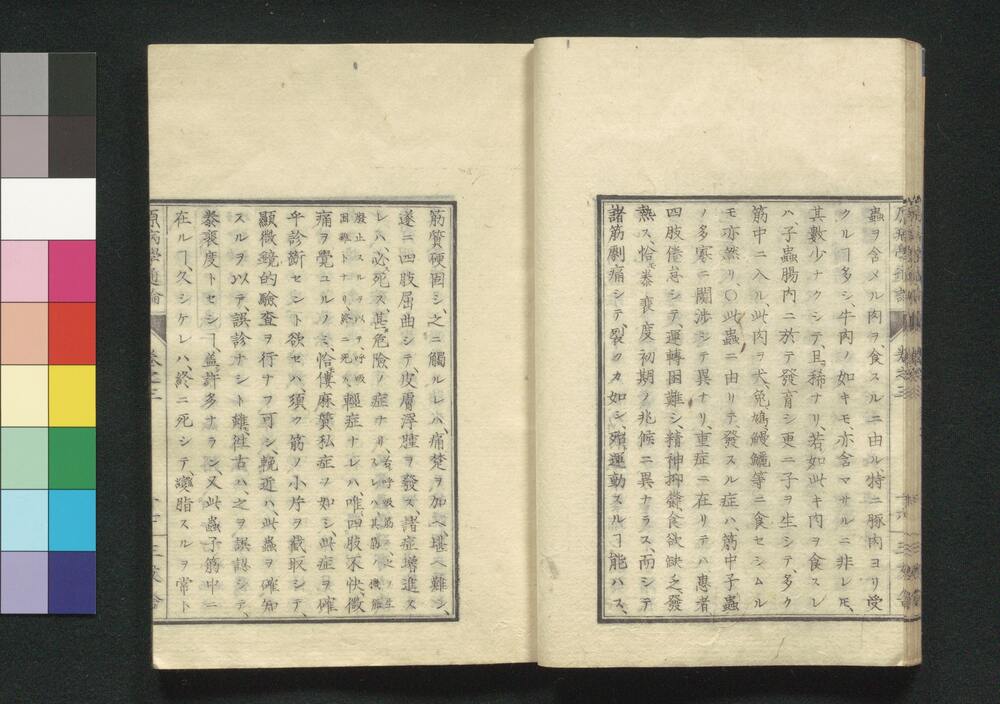 蟲ヲ含メル肉ヲ食スルニ由ル、特ニ豚肉ヨリ受
クルヿ多シ、牛肉ノ如キモ、亦含マサルニ非レ𪜈、
其數少ナクシテ、且稀ナリ、若如此キ肉ヲ食スレ
ハ、子蟲腸内ニ於テ發育シ更ニ子ヲ生シテ、多ク
筋中ニ入ル、此肉ヲ犬、兔、鳩、鰻鱺等ニ食セシムル
モ亦然リ、〇此蟲ニ由リテ發スル症ハ、筋中子蟲
ノ多寡ニ關渉シテ異ナリ、重症ニ在リテハ患者、
四肢倦怠シテ、運轉困難シ、精神抑鬱、食欲缺乏、發
熱ス、恰モ泰衷度初期ノ兆候ニ異ナラス、而シテ
諸筋劇痛シテ、裂クカ如シ、殊運動スルヿ能ハス、
筋質硬固シ、之ニ觸ルレハ、痛楚ヲ加ヘ、堪ヘ難シ、
遂ニ四肢屈曲シテ、皮膚浮腫ヲ發ス、諸症增進ス
レハ、必死ス、甚危險ノ症ナリ、
廢止スルヲ以テ、呼吸
困難トナリ終ニ死ス、輕症ナレハ、唯四肢不快微
痛ヲ覺ユルノミ、恰僂麻質私症ヲ如シ此症ヲ確
乎診斷セント欲セハ、須ク筋ノ小片ヲ截取シテ、
顯微鏡的驗査ヲ行ナフ可シ、輓近ハ、此蟲ヲ確知
スルヲ以テ、誤診ナシト雖、往古ハ、之ヲ誤認シテ、
泰衷度トセシヿ、蓋許多ナラン、又此蟲子筋中ニ
在ルヿ、久シケレハ、終ニ死シテ、變脂スルヲ常ト
原病學通論
卷之三